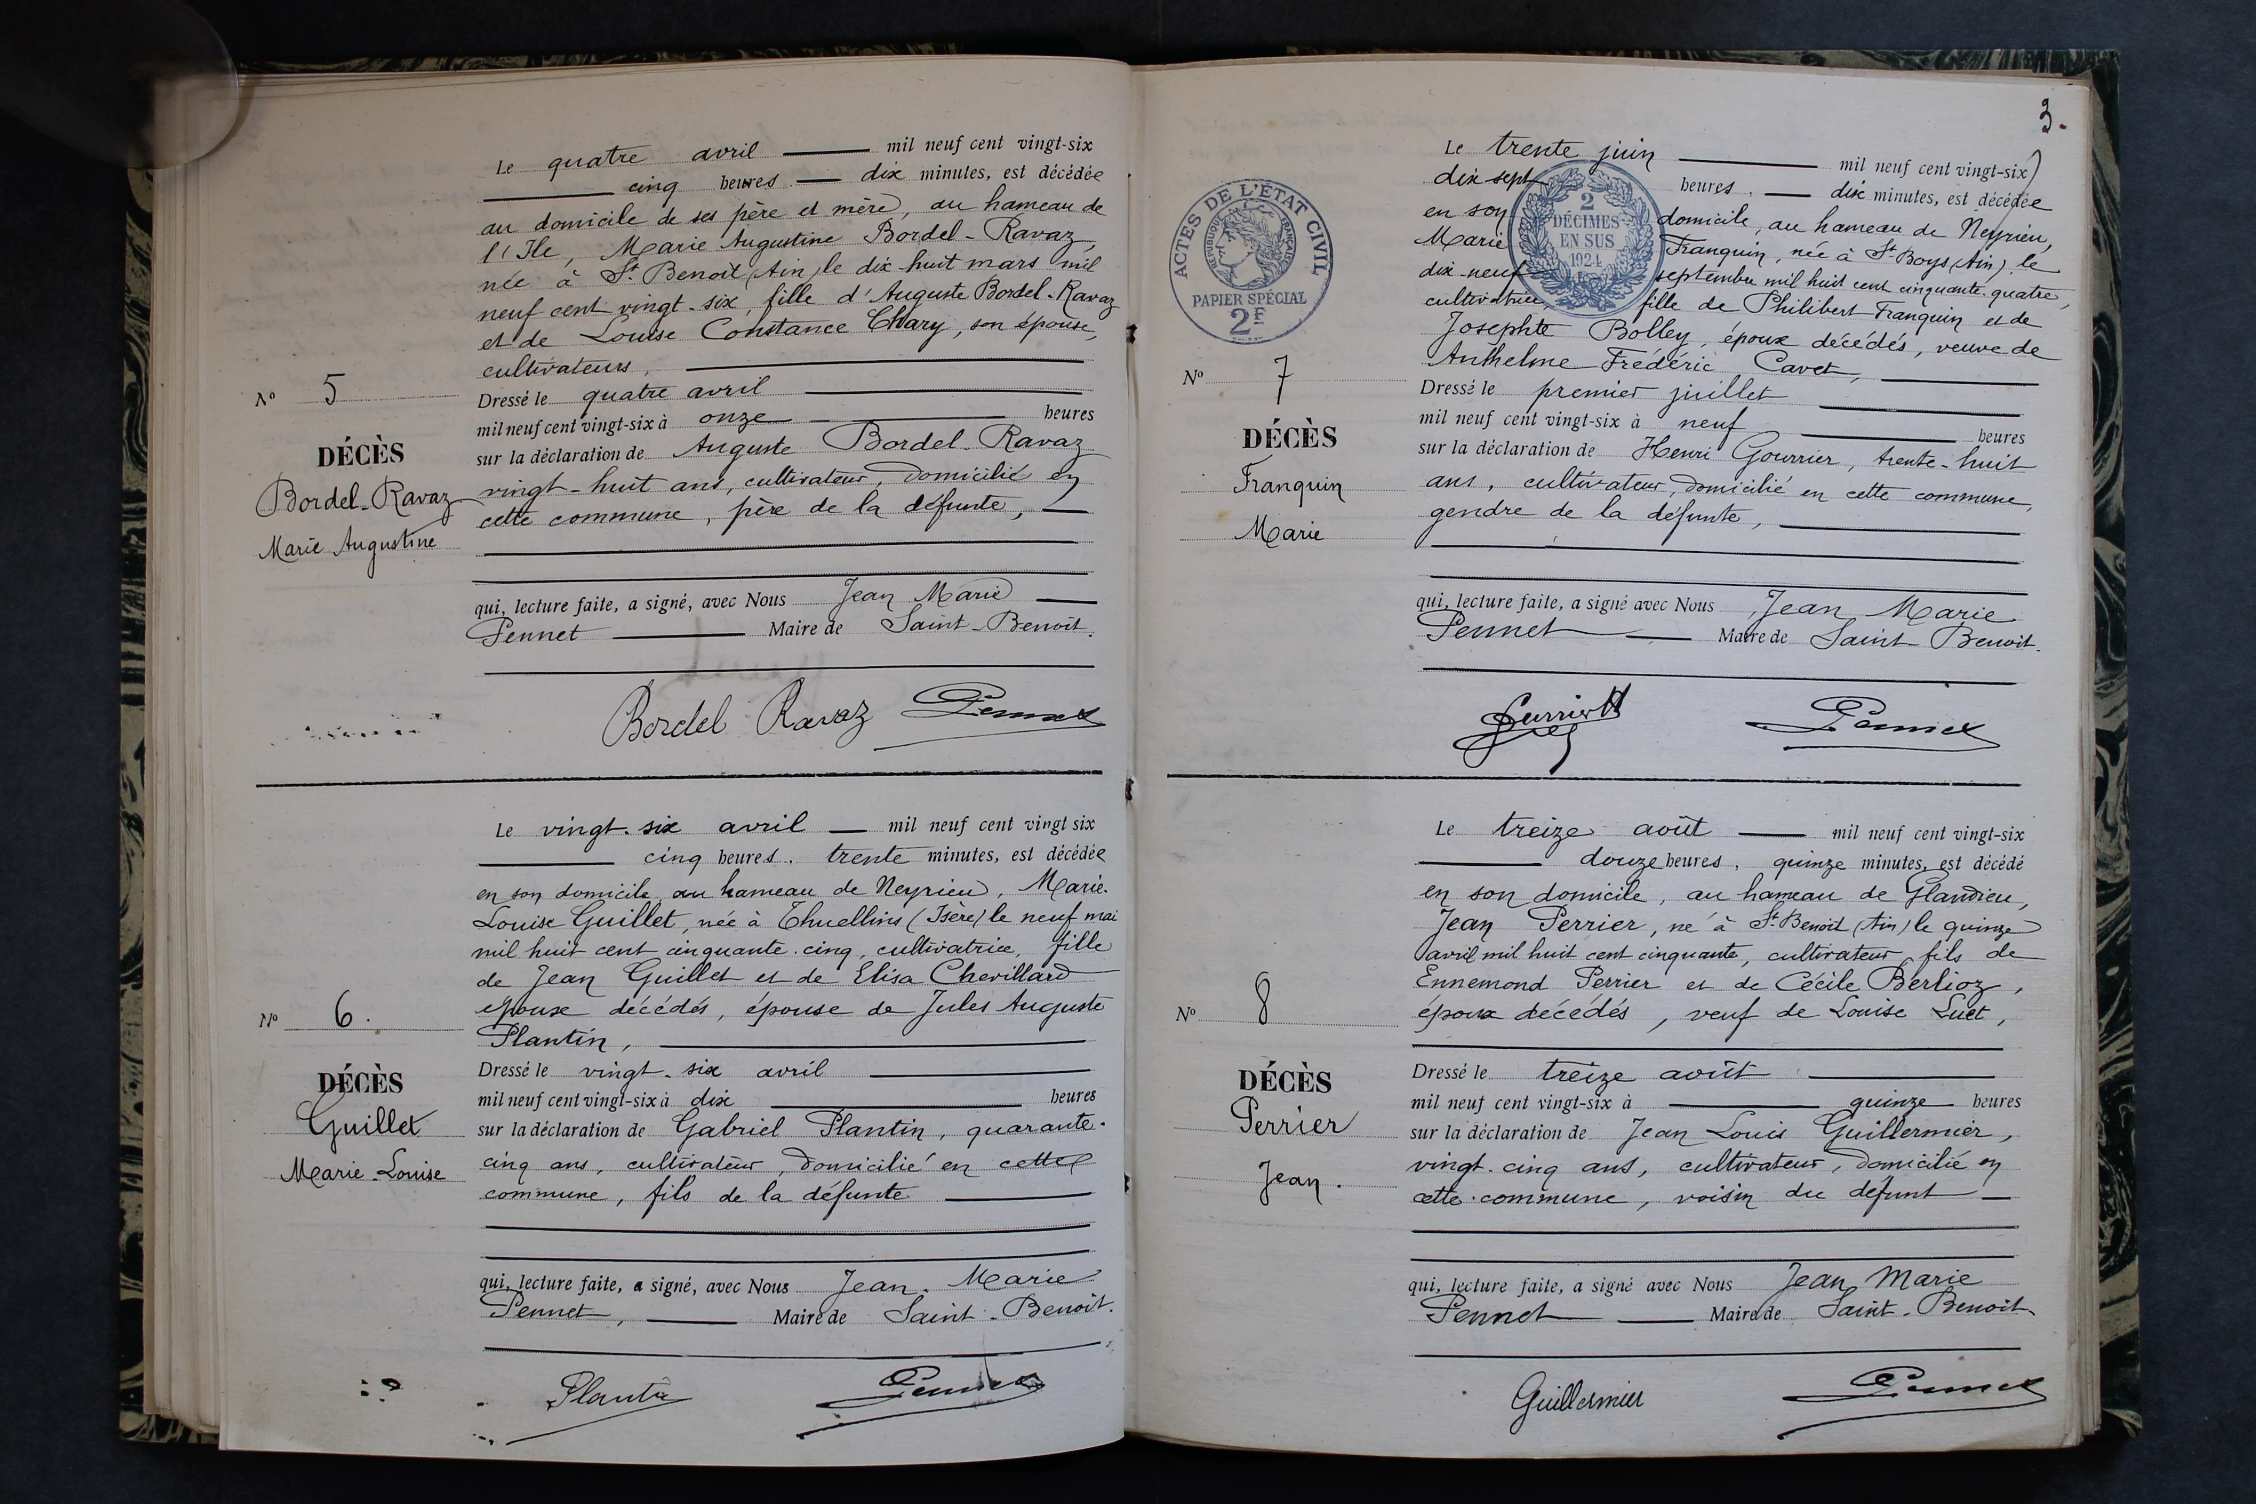 Le quatre avril mil neuf cent vingt-six
cinq heures dix minutes, est décédée
au domicile de ses père et mère, au hameau de
l'Ile, Marie Augustine Bordel-Ravaz,
née à St Benoit (Ain) le dix-huit mars mil
neuf cent vingt-six, fille d'Auguste Bordel-Ravaz
et de Louise Constance Chary, son épouse,
cultivateurs,
Dressé le quatre avril
mil neuf cent vingt-six à onze heures
sur la déclaration de Auguste Bordel-Ravaz
vingt-huit ans, cultivateur, domicilié en
cette commune, père de la défunte,
qui, lecture faite, a signé, avec Nous Jean Marie
Pennet Maire de Saint-Benoit.
Bordel Ravaz Pennet
No 5
DÉCÈS
Bordel-Ravaz
Marie Augustine
Le vingt-six avril mil neuf cent vingt six
cinq heures. trente minutes, est décédée
en son domicile, au hameau de Neyrieu, Marie-
Louise Guillet, née à Thuellins (Isère) le neuf mai
mil huit cent cinquante-cinq, cultivatrice, fille
de Jean Guillet et de Elisa Chevillard
époux décédés, épouse de Jules Auguste
Plantin,
Dressé le vingt-six avril
mil neuf cent vingt-six à dix heures
sur la déclaration de Gabriel Plantin, quarante-
cinq ans, cultivateur, domicilié en cette
commune, fils de la défunte
qui, lecture faite, a signé, avec Nous Jean Marie
Pennet, Maire de Saint-Benoit.
Plantin Pennet
No 6.
DÉCÈS
Guillet
Marie-Louise
3.
Le trente juin mil neuf cent vingt-six
dix sept heures. dix minutes, est décédée
en son domicile, au hameau de Neyrieu,
Marie Franquin, née à St Boys (Ain) le
dix-neuf septembre mil huit cent cinquante-quatre,
cultivatrice, fille de Philibert Franquin et de
Josephte Bolley, époux décédés, veuve de
Anthelme Frédéric Cavet,
Dressé le premier juillet
mil neuf cent vingt-six à neuf heures
sur la déclaration de Henri Gourrier, trente-huit
ans, cultivateur, domicilié en cette commune,
gendre de la défunte,
qui, lecture faite, a signé avec Nous Jean Marie
Pennet Maire de Saint-Benoit.
Pennet
ACTES DE L'ÉTAT CIVIL
RÉPUBLIQUE FRANÇAISE
PAPIER SPÉCIAL
2F
2
DÉCIMES
EN SUS
1924
No 7
DÉCÈS
Franquin
Marie
Le treize août mil neuf cent vingt-six
douze heures, quinze minutes, est décédé
en son domicile, au hameau de Glandieu,
Jean Perrier, né à St Benoit (Ain) le quinze
avril mil huit cent cinquante, cultivateur, fils de
Ennemond Perrier et de Cécile Berlioz,
époux décédés, veuf de Louise Luet,
Dressé le treize août
mil neuf cent vingt-six à quinze heures
sur la déclaration de Jean Louis Guillermier,
vingt-cinq ans, cultivateur, domicilié en
cette commune, voisin du défunt
qui, lecture faite, a signé avec Nous Jean Marie
Pennet Maire de Saint-Benoit
Guillermier Pennet
No 8
DÉCÈS
Perrier
Jean.